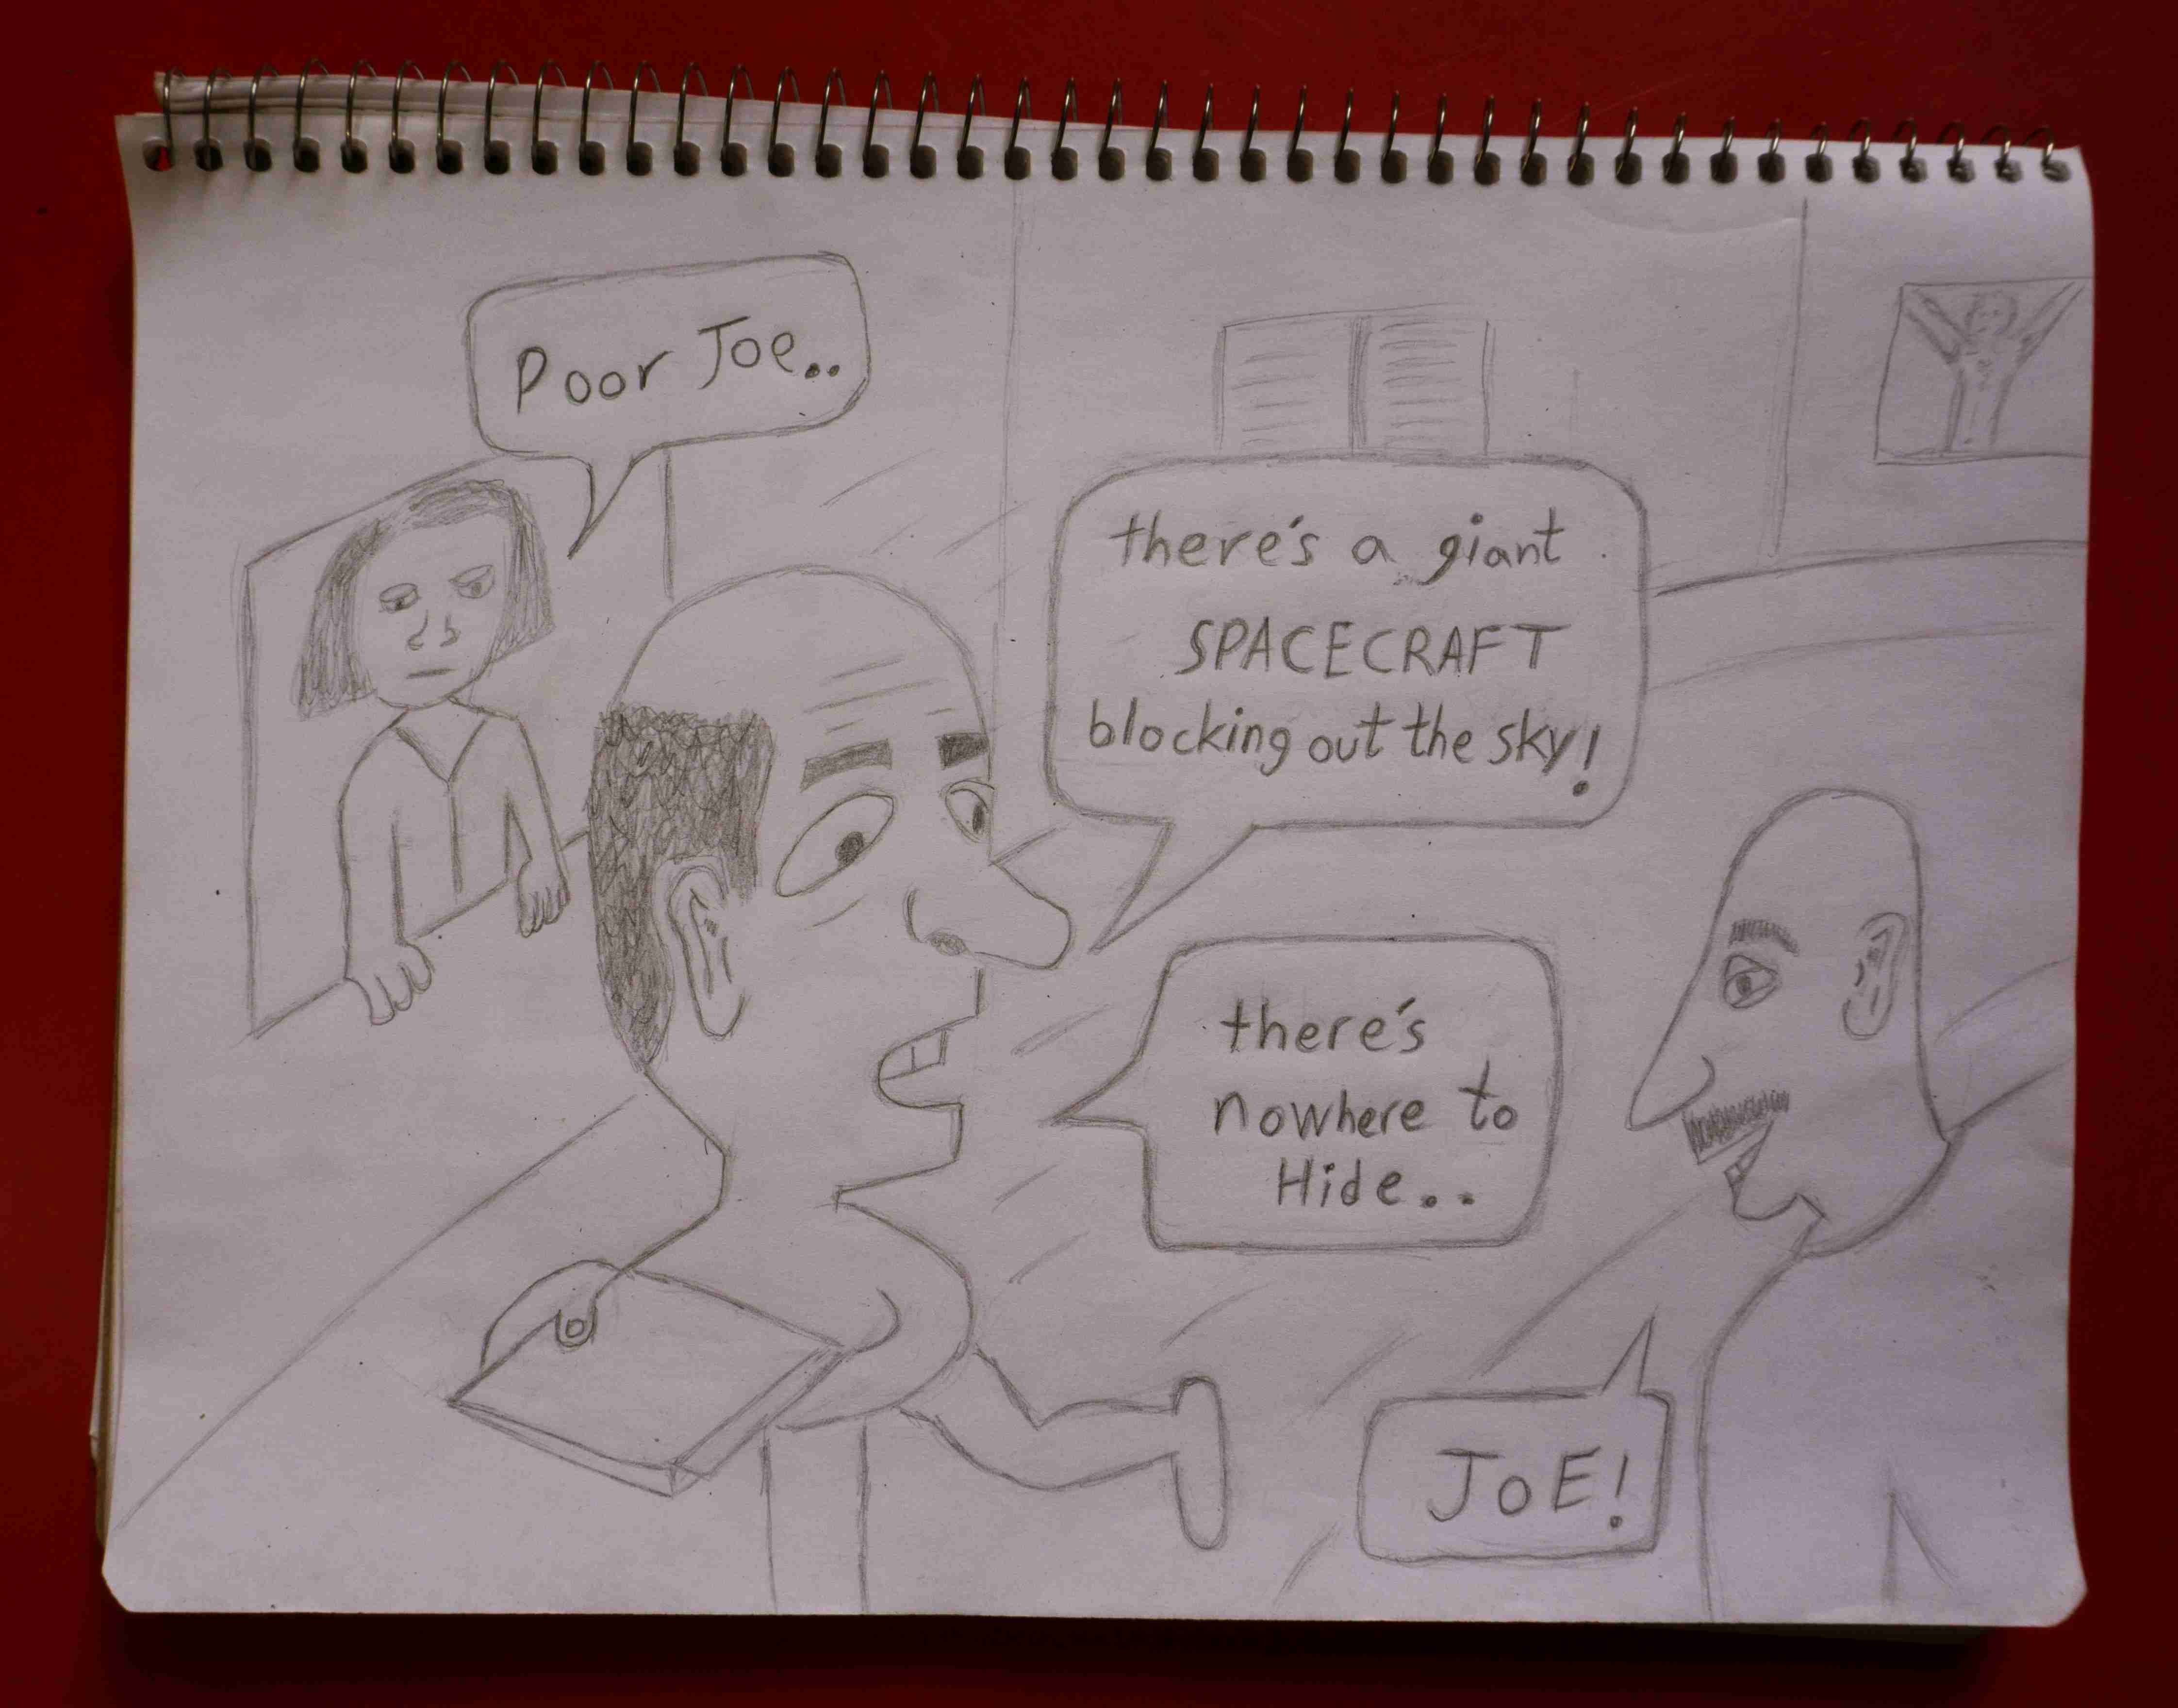 Poor Joe..
there's a giant
SPACECRAFT
blocking out the sky!
there's
nowhere to
Hide..
JoE!